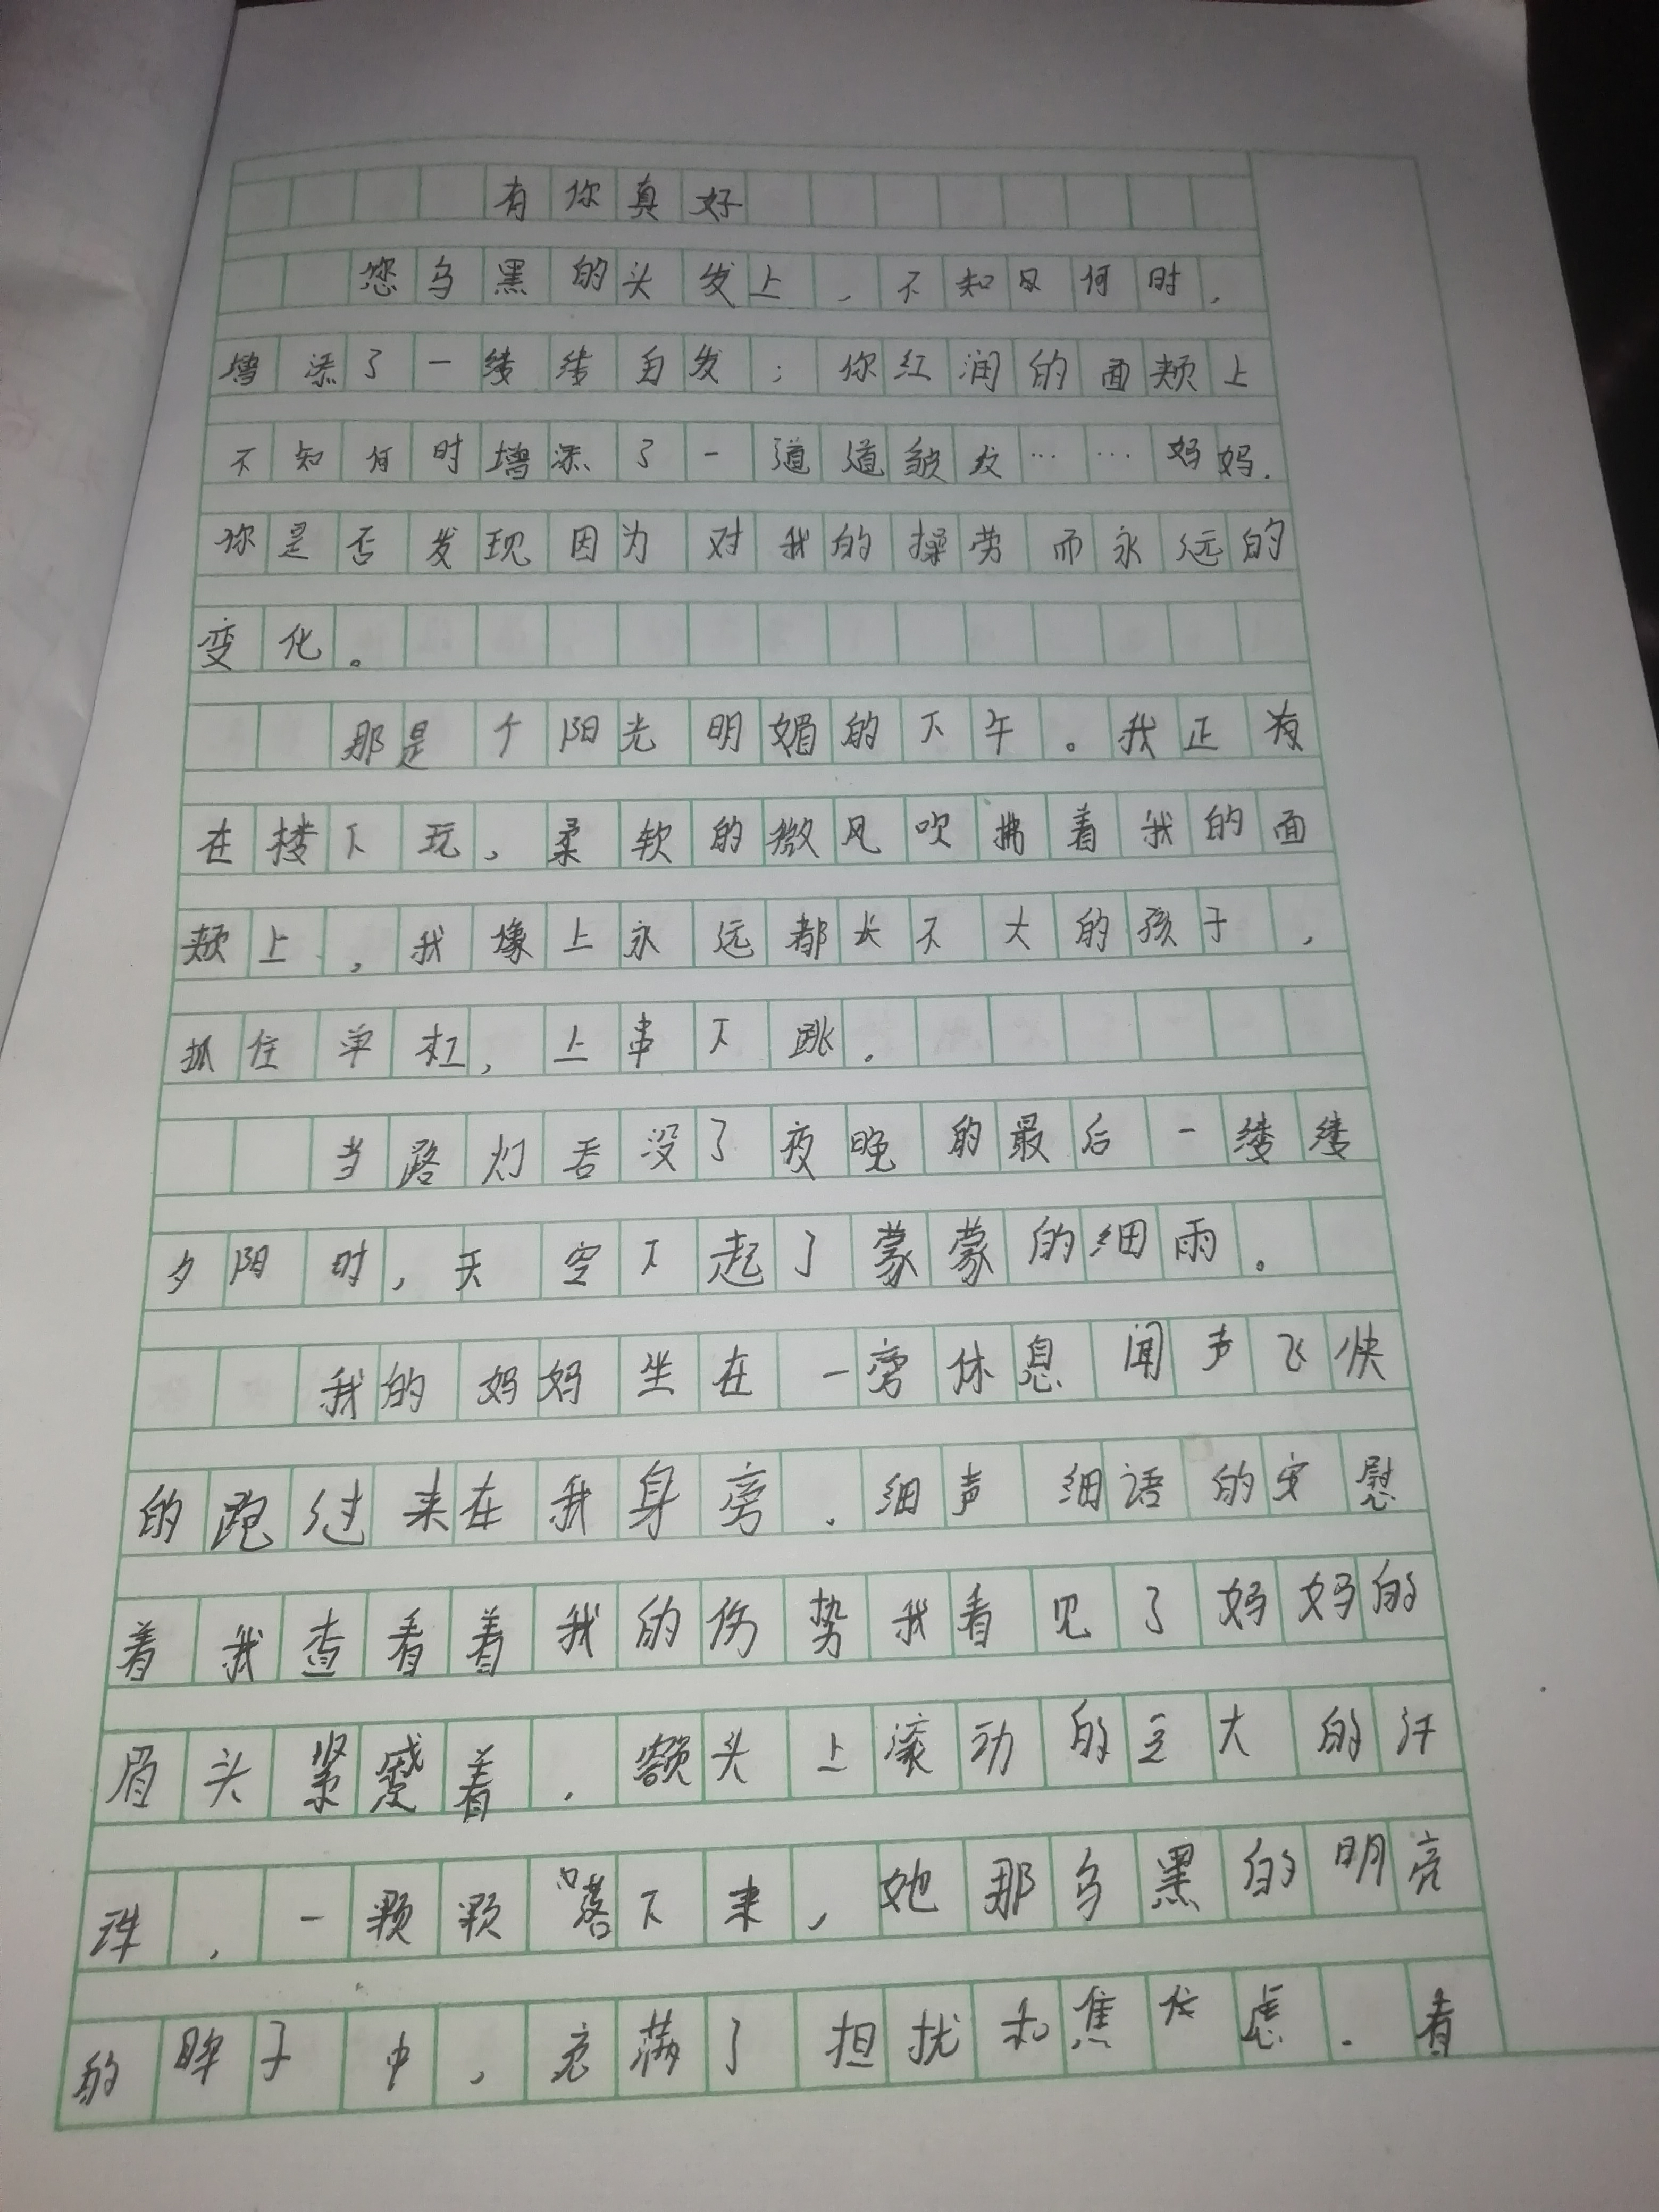 有你真好
您乌黑的头发上，不知何时，
增添了一缕缕白发；你红润的面颊上
不知何时增添了一道道皱纹……妈妈．
你是否发现因为对我的操劳而永远的
变化。
那是个阳光明媚的下午。我正
在楼下玩，柔软的微风吹拂着我的面
颊上，我像上永远都长不大的孩子，
抓住单杠，上串下跳。
当路灯吞没了夜晚的最后一缕缕
夕阳时，天空下起了蒙蒙的细雨。
我的妈妈坐在一旁休息闻声飞快
的跑过来在我身旁．细声细语的安慰
着我查看着我的伤势我看见了妈妈的
眉头紧蹙着．额头上滚动的豆大的汗
珠，一颗颗落下来，她那乌黑的明亮
的眸子中，充满了担扰和焦虑．看